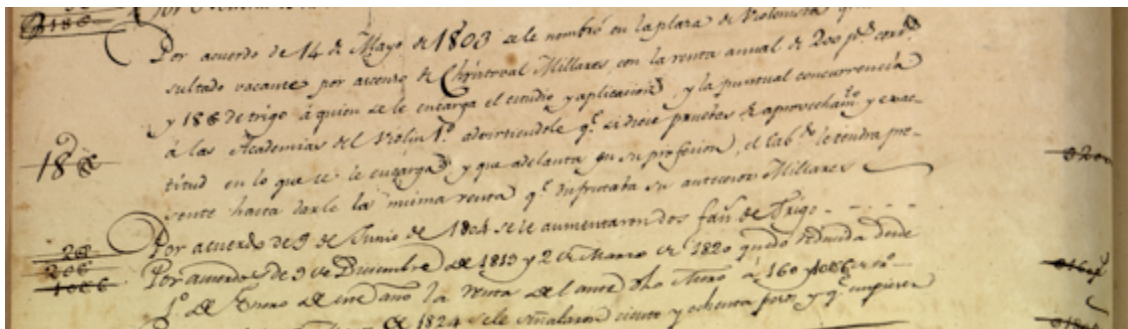 Por acuerdo de 14 de Mayo de 1803 se le nombró en la plaza de Violinista
sultado vacante por ascenso de Christoval Millares con la renta anual de 200 p.s corr.s
y 18 de trigo á quien se le encarga el estudio y aplicacion, y la puntual concurrencia
á las Academias del Violin 1.º advirtiendole q.e si diese pruebas de aprovecham.to y exac-
18
titud en lo que se le encarga y que adelanta en su profesion, el Cab.do le tendra pre-
sente hasta darle la misma renta q.e disfrutaba su antecesor Millares
Por acuerdo de 9 de Junio de 1804 se le aumentaron dos fan.s de Trigo - - - -
Por acuerdos de 9 de Diciembre de 1819 y 2 de Marzo de 1820 quedó reducida desde
1.º de Enero de este año la renta del ante dho á 160
de 1824 se le señalaron ciento y ochenta pesos y q.e empiezen